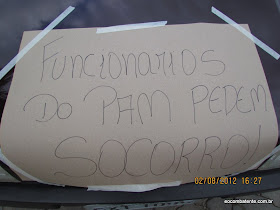 FUNCIONARIOS
DO PAM PEDEM
SOCORRO!
02/08/2012 16:27
socombatente.com.br